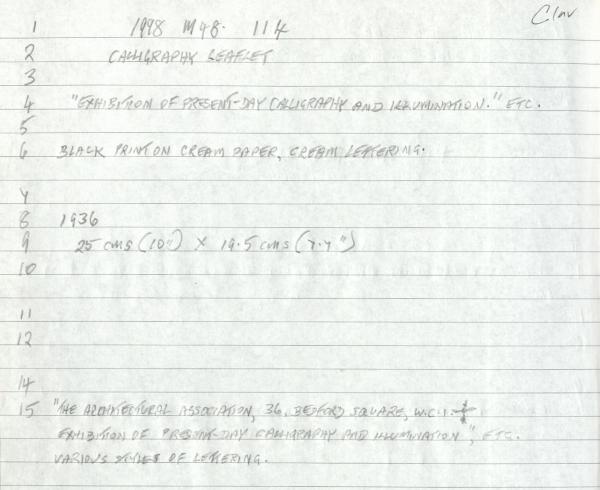 Clav
1 1998 M48. 114
2 CALLIGRAPHY LEAFLET
3
4 "EXHIBITION OF PRESENT-DAY CALLIGRAPHY AND ILLUMINATION." ETC.
5
6 BLACK PRINT ON CREAM PAPER, CREAM LETTERING.
7
8 1936
9 25 cms (10") X 19.5 cms (7.7")
10
11
12
14
15 "THE ARCHITECTURAL ASSOCIATION, 36, BEDFORD SQUARE, W.C.1.
EXHIBITION OF PRESENT-DAY CALLIGRAPHY AND ILLUMINATION", ETC.
VARIOUS STYLES OF LETTERING.